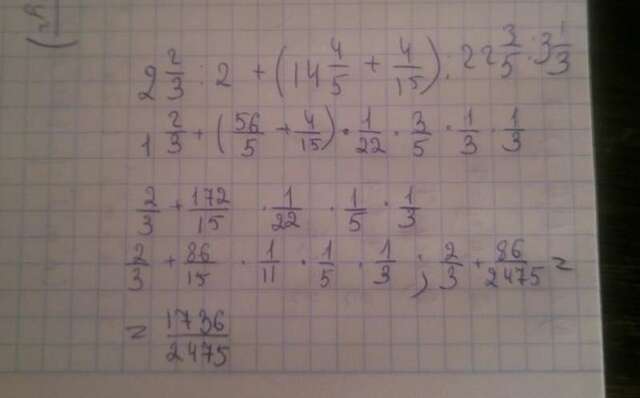 2 2/3 : 2 + (14 4/5 + 4/15) : 22 3/5 · 3 1/3
1 2/3 + (56/5 + 4/15) · 1/22 · 3/5 · 1/3 · 1/3
2/3 + 172/15 · 1/22 · 1/5 · 1/3
2/3 + 86/15 · 1/11 · 1/5 · 1/3 ; 2/3 + 86/2475 =
= 1736/2475